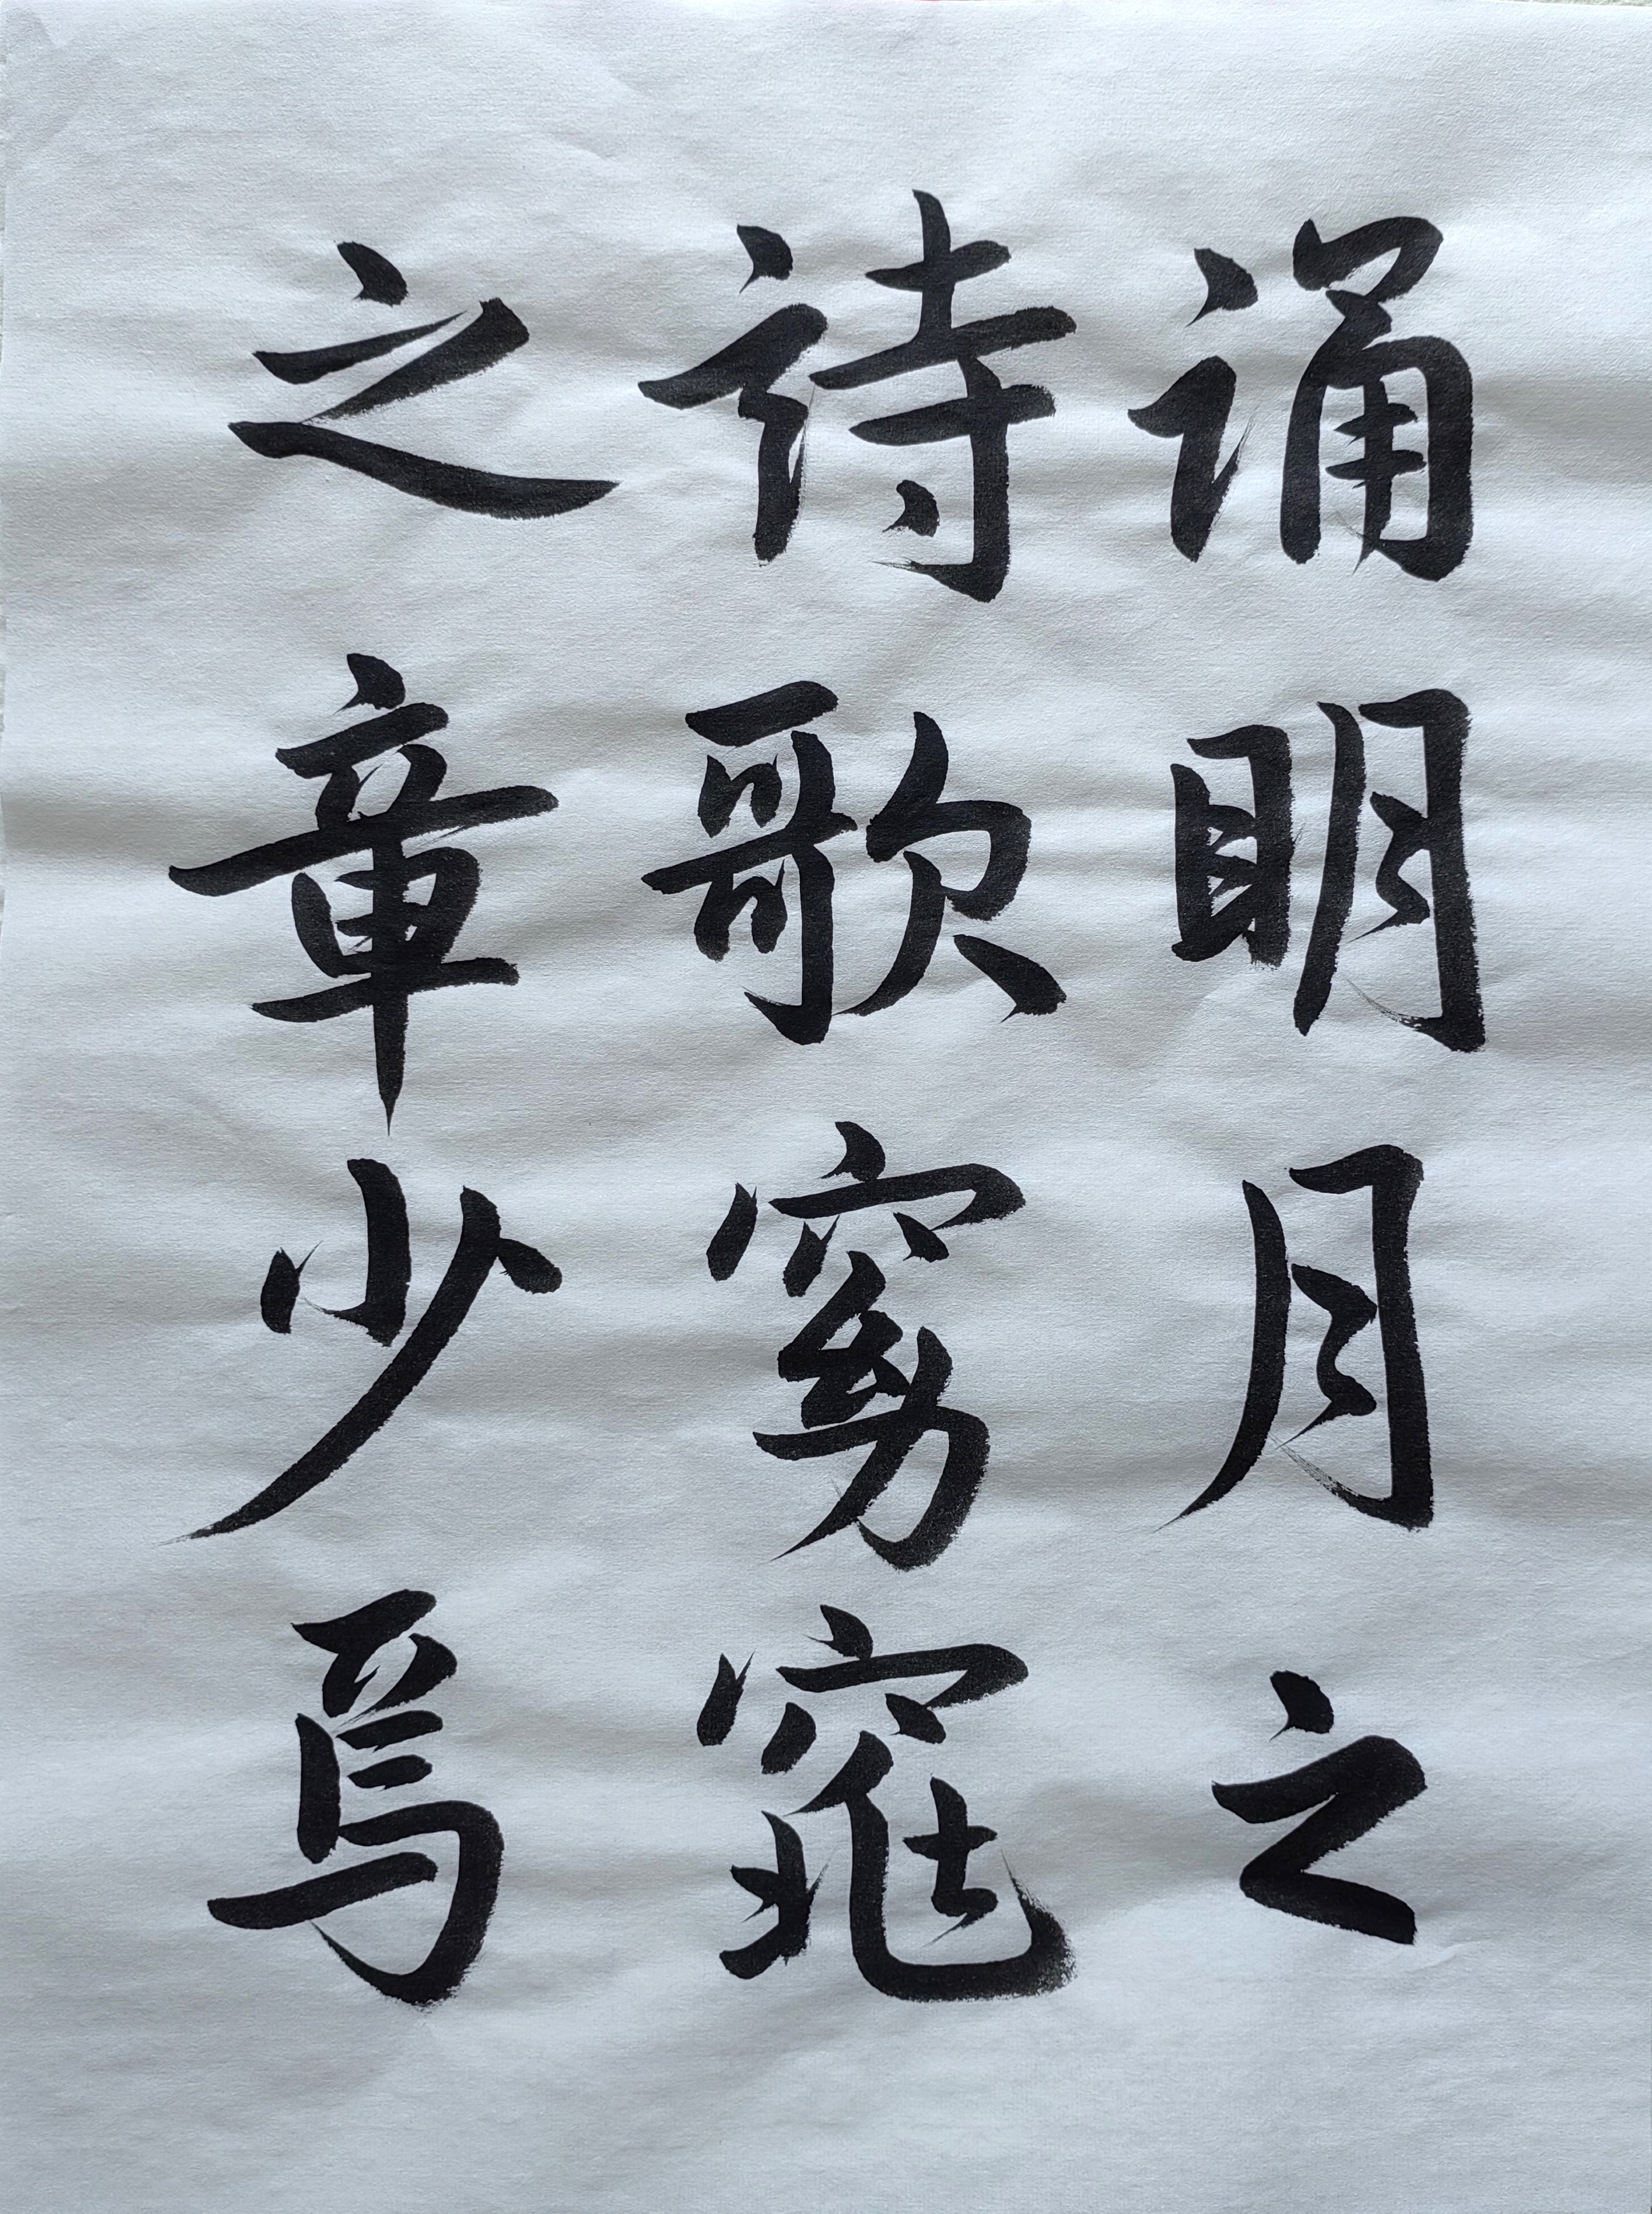 诵明月之
诗歌窈窕
之章少焉